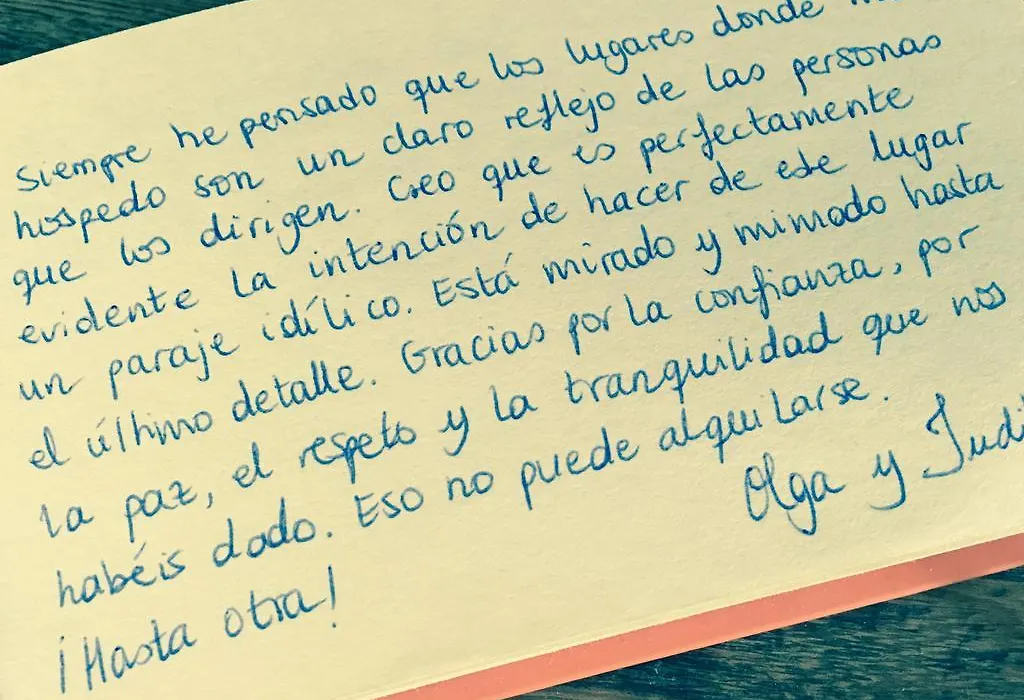 Siempre he pensado que los lugares donde
hospedo son un claro reflejo de las personas
que los dirigen. Creo que es perfectamente
evidente la intención de hacer de este lugar
un paraje idílico. Está mirado y mimado hasta
el último detalle. Gracias por la confianza, por
la paz, el respeto y la tranquilidad que nos
habéis dado. Eso no puede alquilarse.
Olga y Judi
¡Hasta otra!